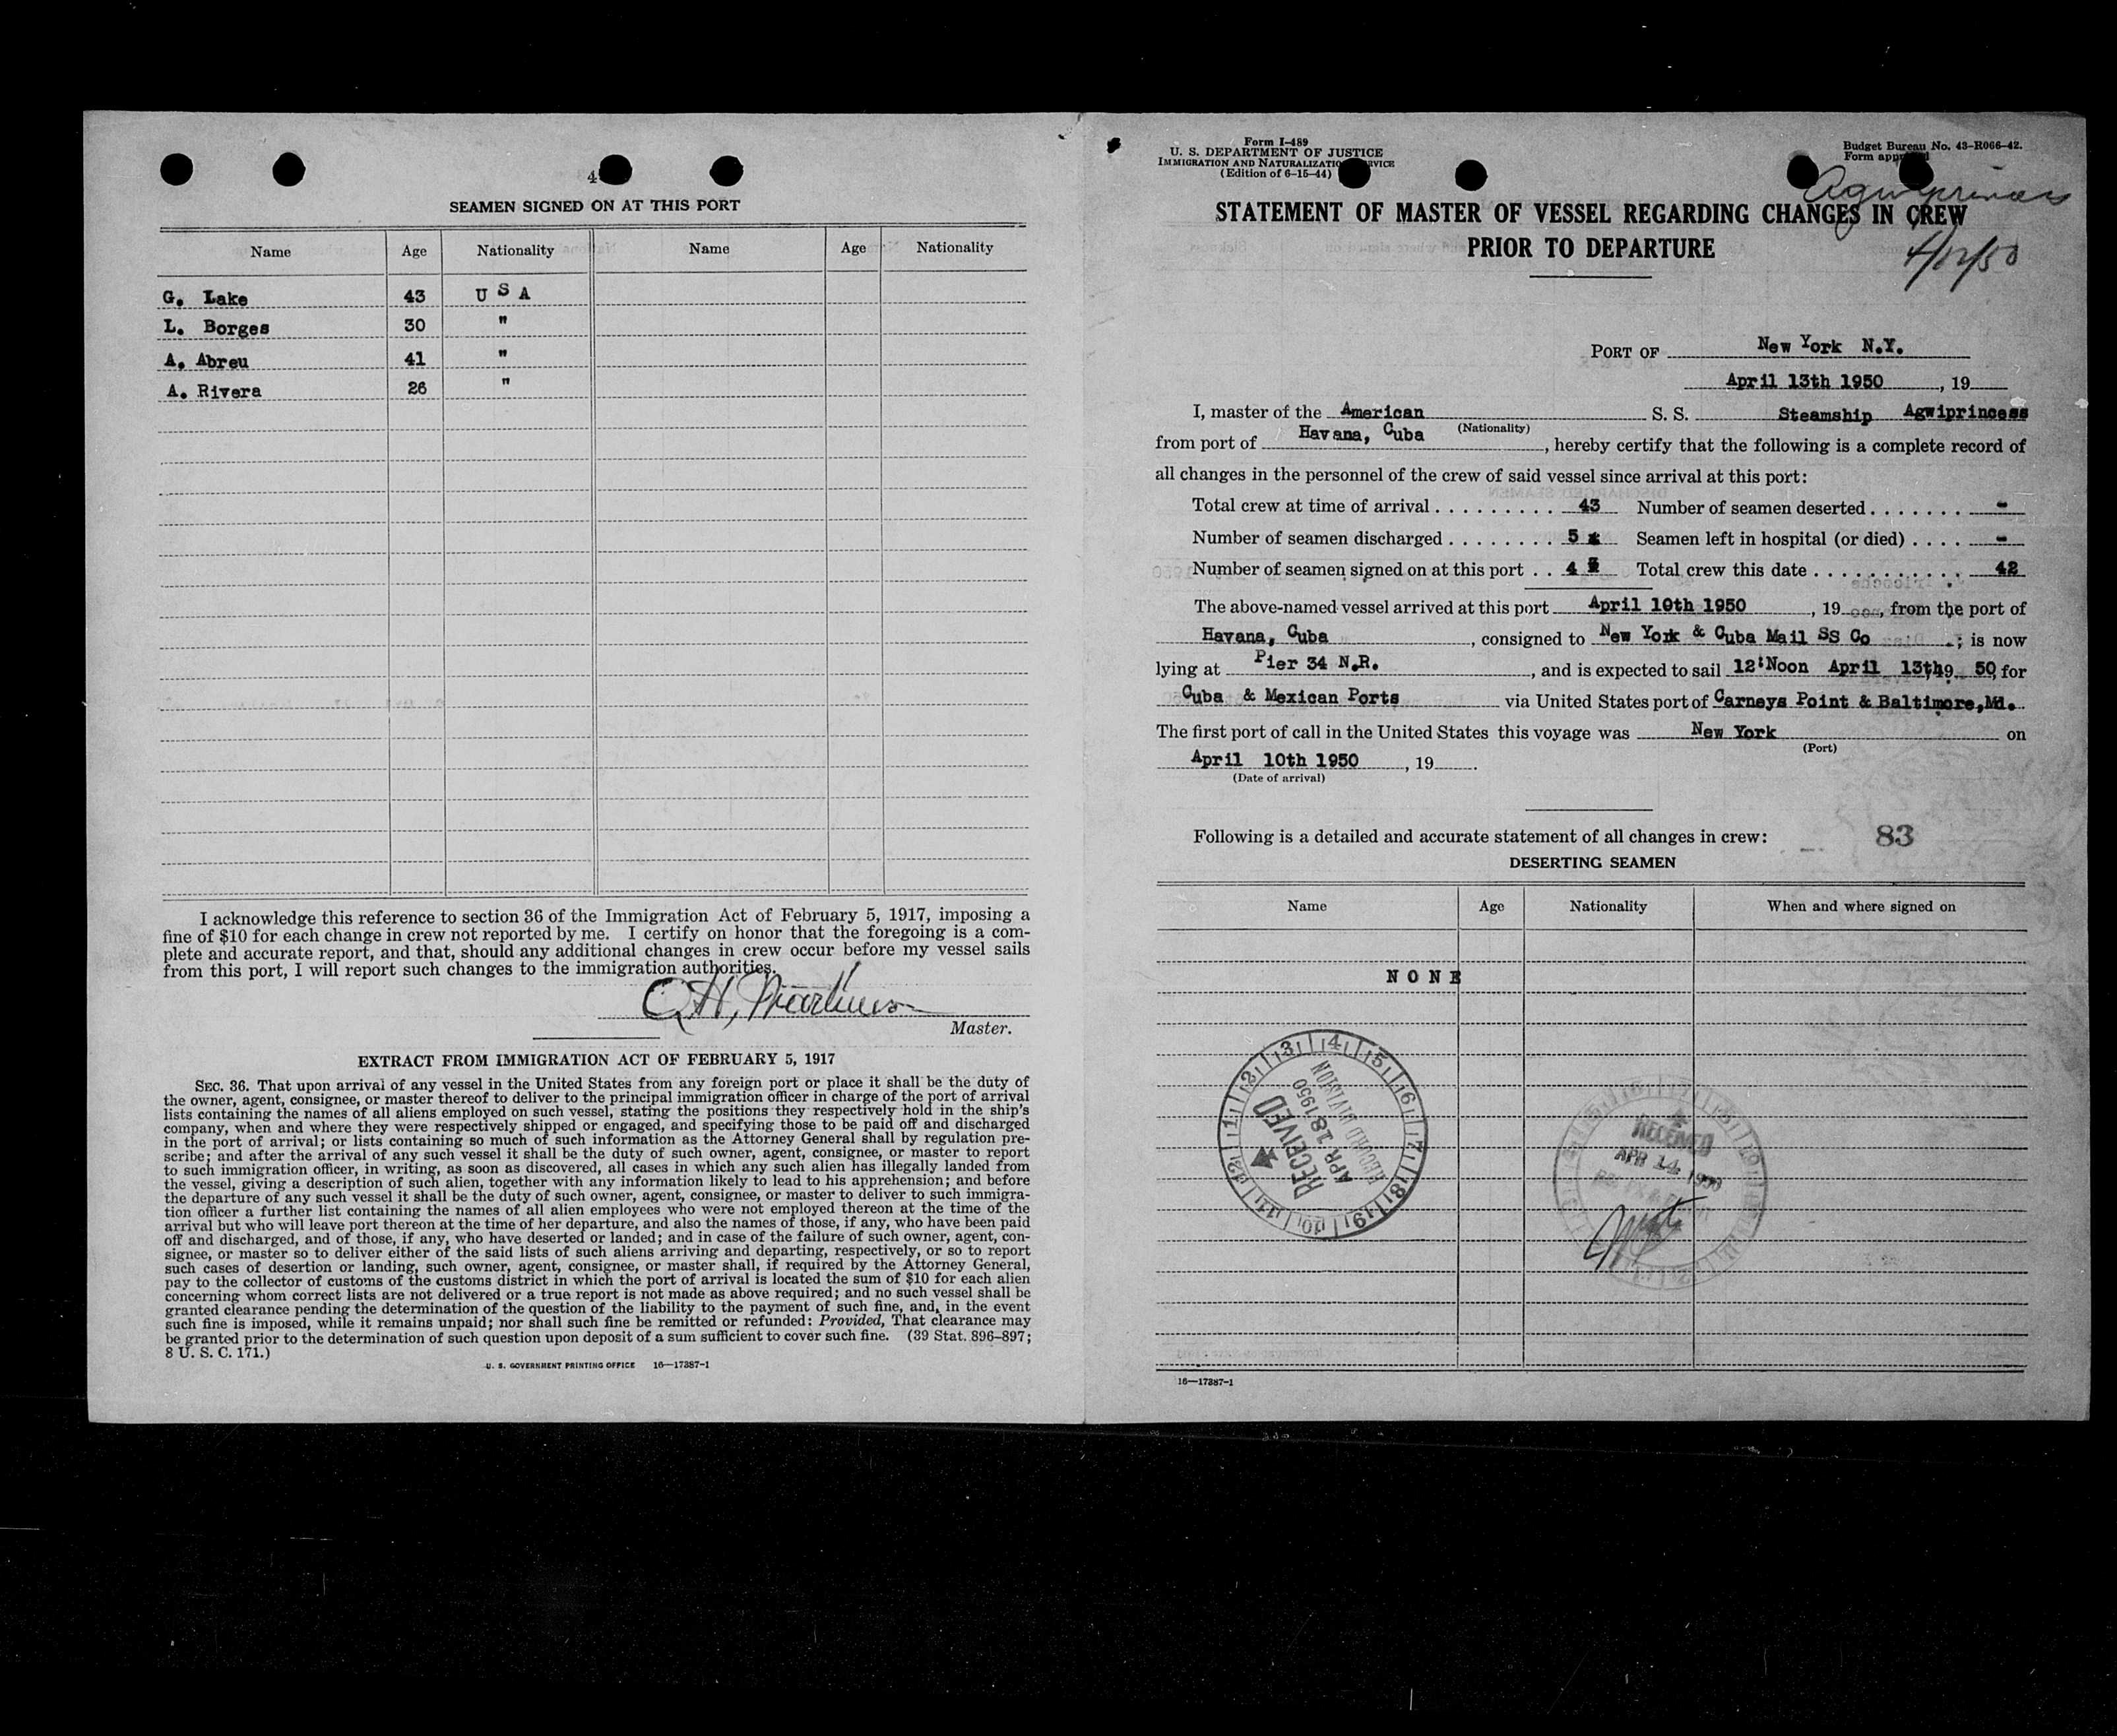 4
SEAMEN SIGNED ON AT THIS PORT
Name Age Nationality Name Age Nationality
G. Lake 43 U S A
L. Borges 30 "
A. Abreu 41 "
A. Rivera 26 "
I acknowledge this reference to section 36 of the Immigration Act of February 5, 1917, imposing a
fine of $10 for each change in crew not reported by me. I certify on honor that the foregoing is a com-
plete and accurate report, and that, should any additional changes in crew occur before my vessel sails
from this port, I will report such changes to the immigration authorities.
Master.
EXTRACT FROM IMMIGRATION ACT OF FEBRUARY 5, 1917
SEC. 36. That upon arrival of any vessel in the United States from any foreign port or place it shall be the duty of
the owner, agent, consignee, or master thereof to deliver to the principal immigration officer in charge of the port of arrival
lists containing the names of all aliens employed on such vessel, stating the positions they respectively hold in the ship's
company, when and where they were respectively shipped or engaged, and specifying those to be paid off and discharged
in the port of arrival; or lists containing so much of such information as the Attorney General shall by regulation pre-
scribe; and after the arrival of any such vessel it shall be the duty of such owner, agent, consignee, or master to report
to such immigration officer, in writing, as soon as discovered, all cases in which any such alien has illegally landed from
the vessel, giving a description of such alien, together with any information likely to lead to his apprehension; and before
the departure of any such vessel it shall be the duty of such owner, agent, consignee, or master to deliver to such immigra-
tion officer a further list containing the names of all alien employees who were not employed thereon at the time of the
arrival but who will leave port thereon at the time of her departure, and also the names of those, if any, who have been paid
off and discharged, and of those, if any, who have deserted or landed; and in case of the failure of such owner, agent, con-
signee, or master so to deliver either of the said lists of such aliens arriving and departing, respectively, or so to report
such cases of desertion or landing, such owner, agent, consignee, or master shall, if required by the Attorney General,
pay to the collector of customs of the customs district in which the port of arrival is located the sum of $10 for each alien
concerning whom correct lists are not delivered or a true report is not made as above required; and no such vessel shall be
granted clearance pending the determination of the question of the liability to the payment of such fine, and, in the event
such fine is imposed, while it remains unpaid; nor shall such fine be remitted or refunded: Provided, That clearance may
be granted prior to the determination of such question upon deposit of a sum sufficient to cover such fine. (39 Stat. 896–897;
8 U. S. C. 171.)
U. S. GOVERNMENT PRINTING OFFICE 16—17387-1
Form I-489
U. S. DEPARTMENT OF JUSTICE
IMMIGRATION AND NATURALIZATION SERVICE
(Edition of 6-15-44)
Budget Bureau No. 43-R066-42.
Form approved
Agwiprincess
STATEMENT OF MASTER OF VESSEL REGARDING CHANGES IN CREW
PRIOR TO DEPARTURE
4/12/50
PORT OF New York N.Y.
April 13th 1950 , 19
I, master of the American S. S. Steamship Agwiprincess
(Nationality)
from port of Havana, Cuba , hereby certify that the following is a complete record of
all changes in the personnel of the crew of said vessel since arrival at this port:
Total crew at time of arrival . . . . . . . . . 43 Number of seamen deserted . . . . . . . -
Number of seamen discharged . . . . . . . . 5 Seamen left in hospital (or died) . . . . -
Number of seamen signed on at this port . . 4 Total crew this date . . . . . . . . . . . . 42
The above-named vessel arrived at this port April 10th 1950 , 19 , from the port of
Havana, Cuba , consigned to New York & Cuba Mail SS Co .; is now
lying at Pier 34 N.R. , and is expected to sail 12:Noon April 13th 9 50 for
Cuba & Mexican Ports via United States port of Carneys Point & Baltimore,Md.
The first port of call in the United States this voyage was New York on
(Port)
April 10th 1950 , 19 .
(Date of arrival)
Following is a detailed and accurate statement of all changes in crew:
83
DESERTING SEAMEN
Name Age Nationality When and where signed on
N O N E
RECEIVED
APR 18 1950
RECORD DIVISION
RECEIVED
APR 14 1950
16—17387-1